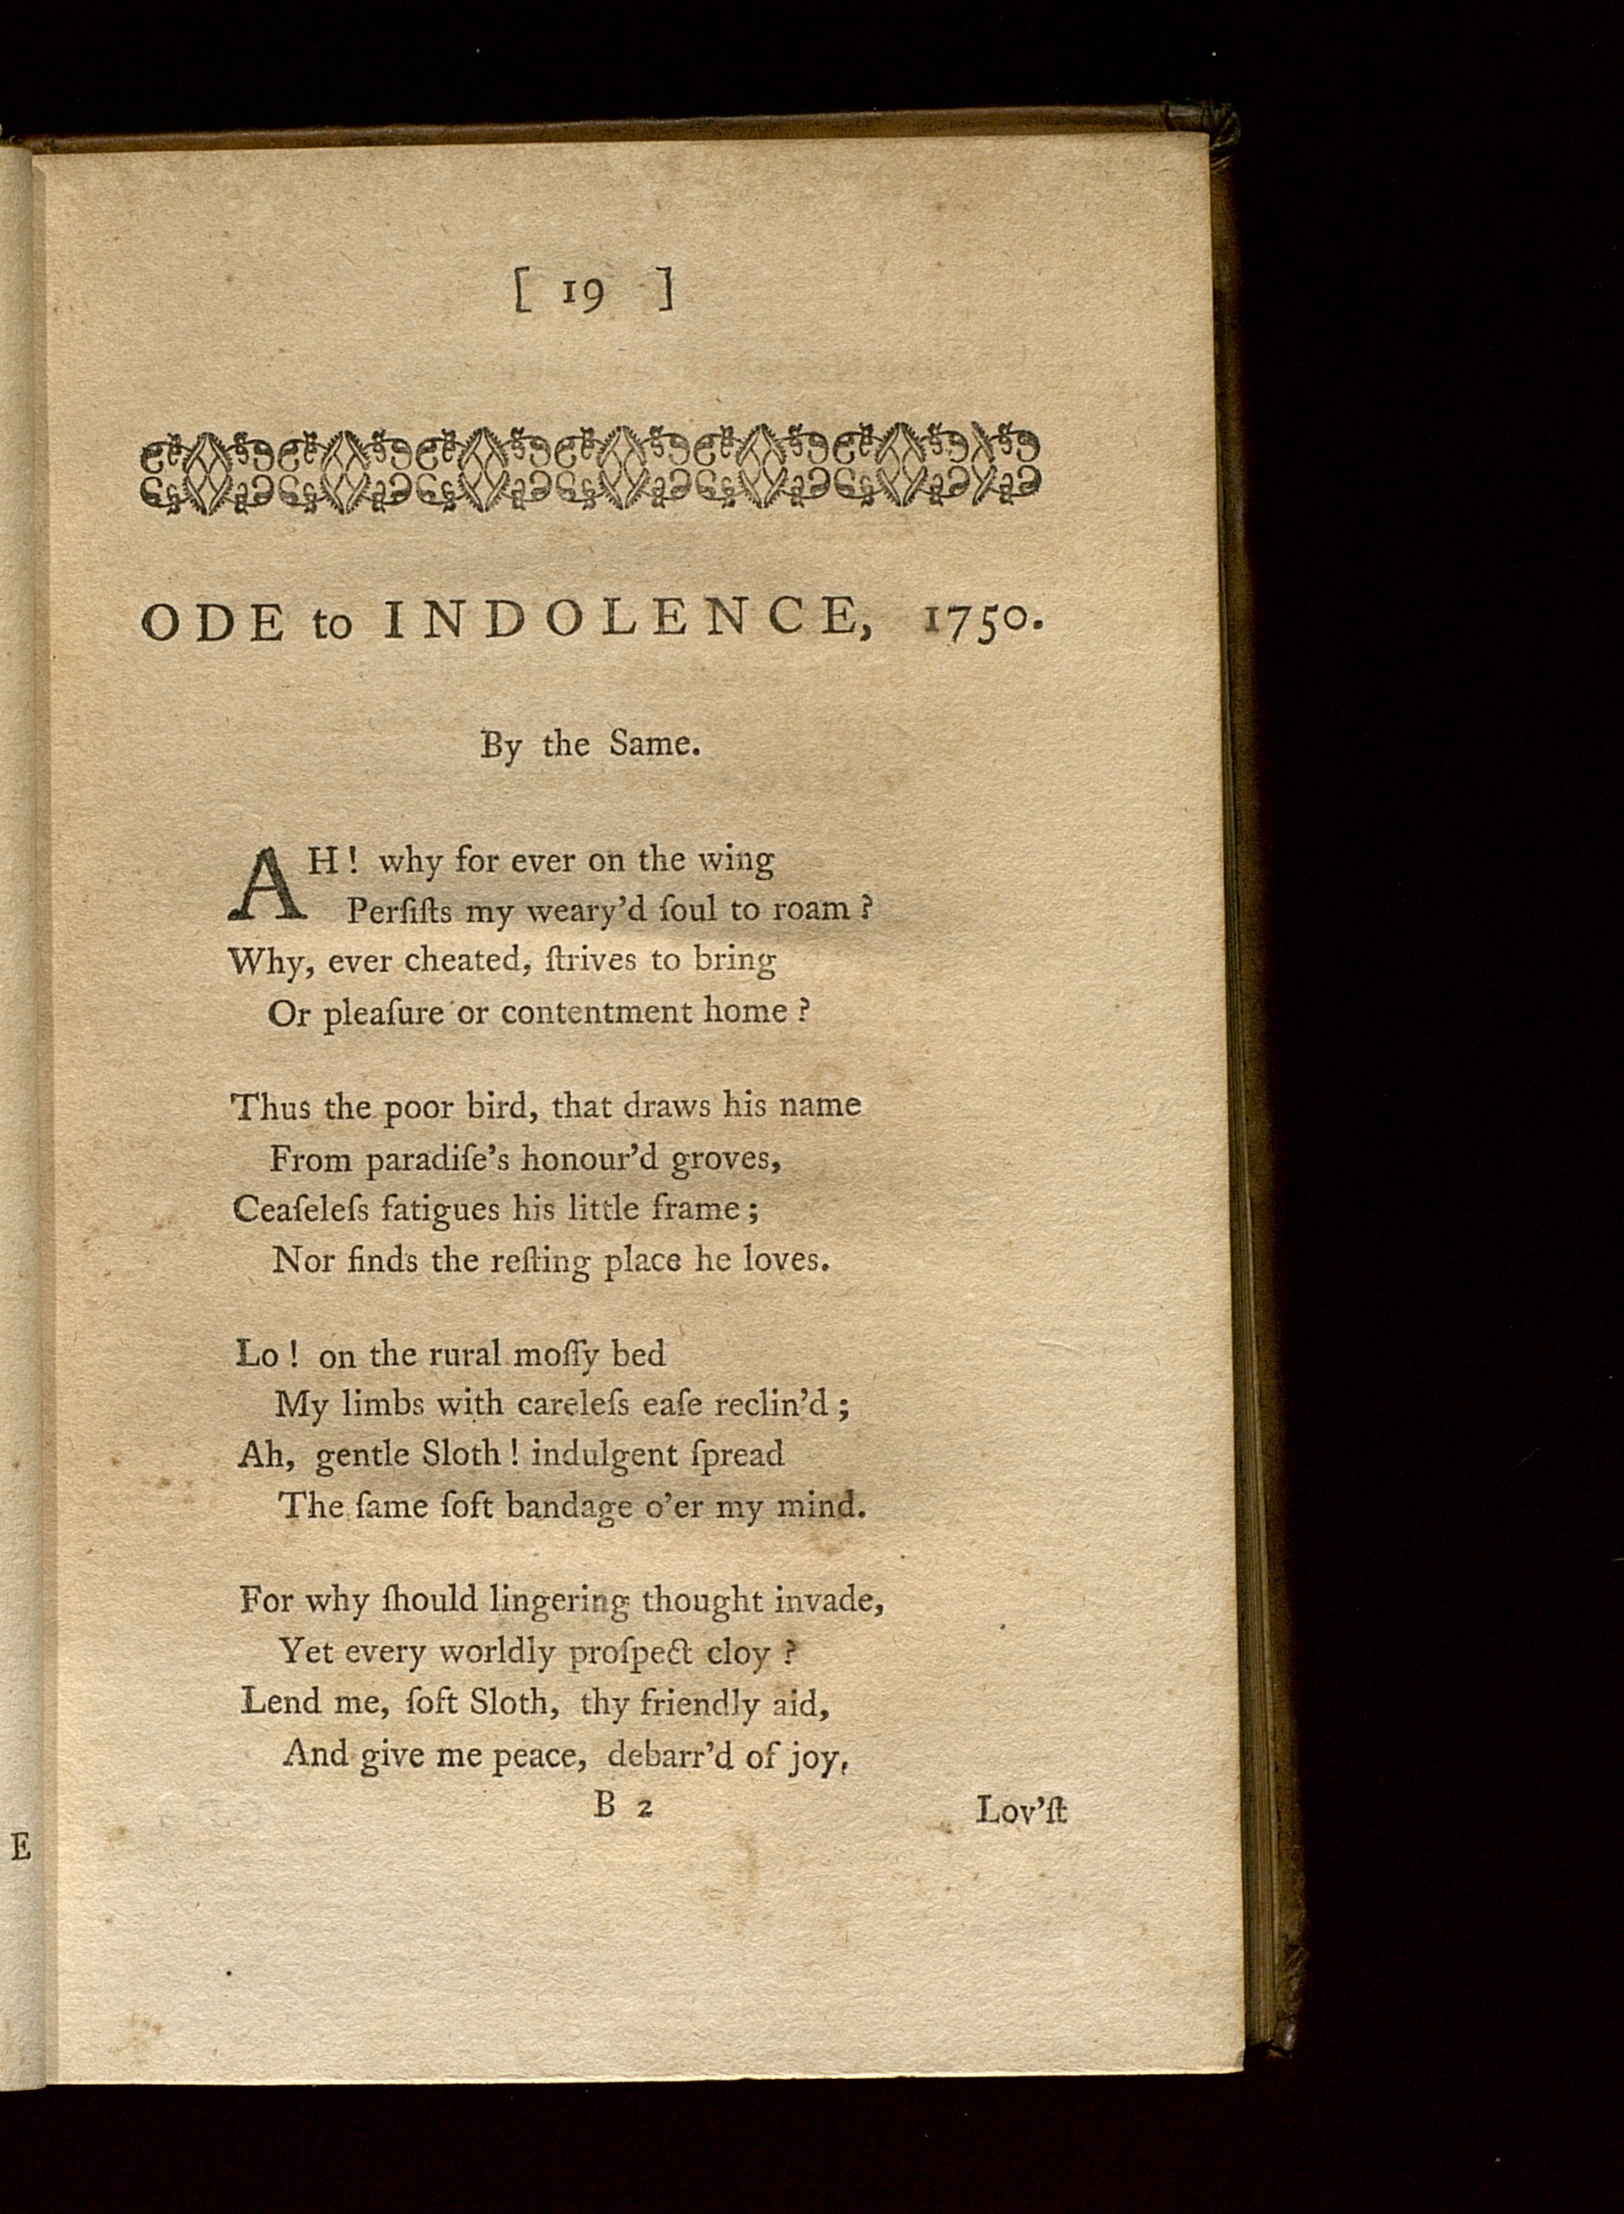 [ 19 ]
ODE to INDOLENCE, 1750.
By the Same.
AH! why for ever on the wing
Perſiſts my weary'd ſoul to roam?
Why, ever cheated, ſtrives to bring
Or pleaſure or contentment home?
Thus the poor bird, that draws his name
From paradiſe's honour'd groves,
Ceaſeleſs fatigues his little frame;
Nor finds the reſting place he loves.
Lo! on the rural moſſy bed
My limbs with careleſs eaſe reclin'd;
Ah, gentle Sloth! indulgent ſpread
The ſame ſoft bandage o'er my mind.
For why ſhould lingering thought invade,
Yet every worldly proſpect cloy?
Lend me, ſoft Sloth, thy friendly aid,
And give me peace, debarr'd of joy,
B 2
Lov'ſt
E